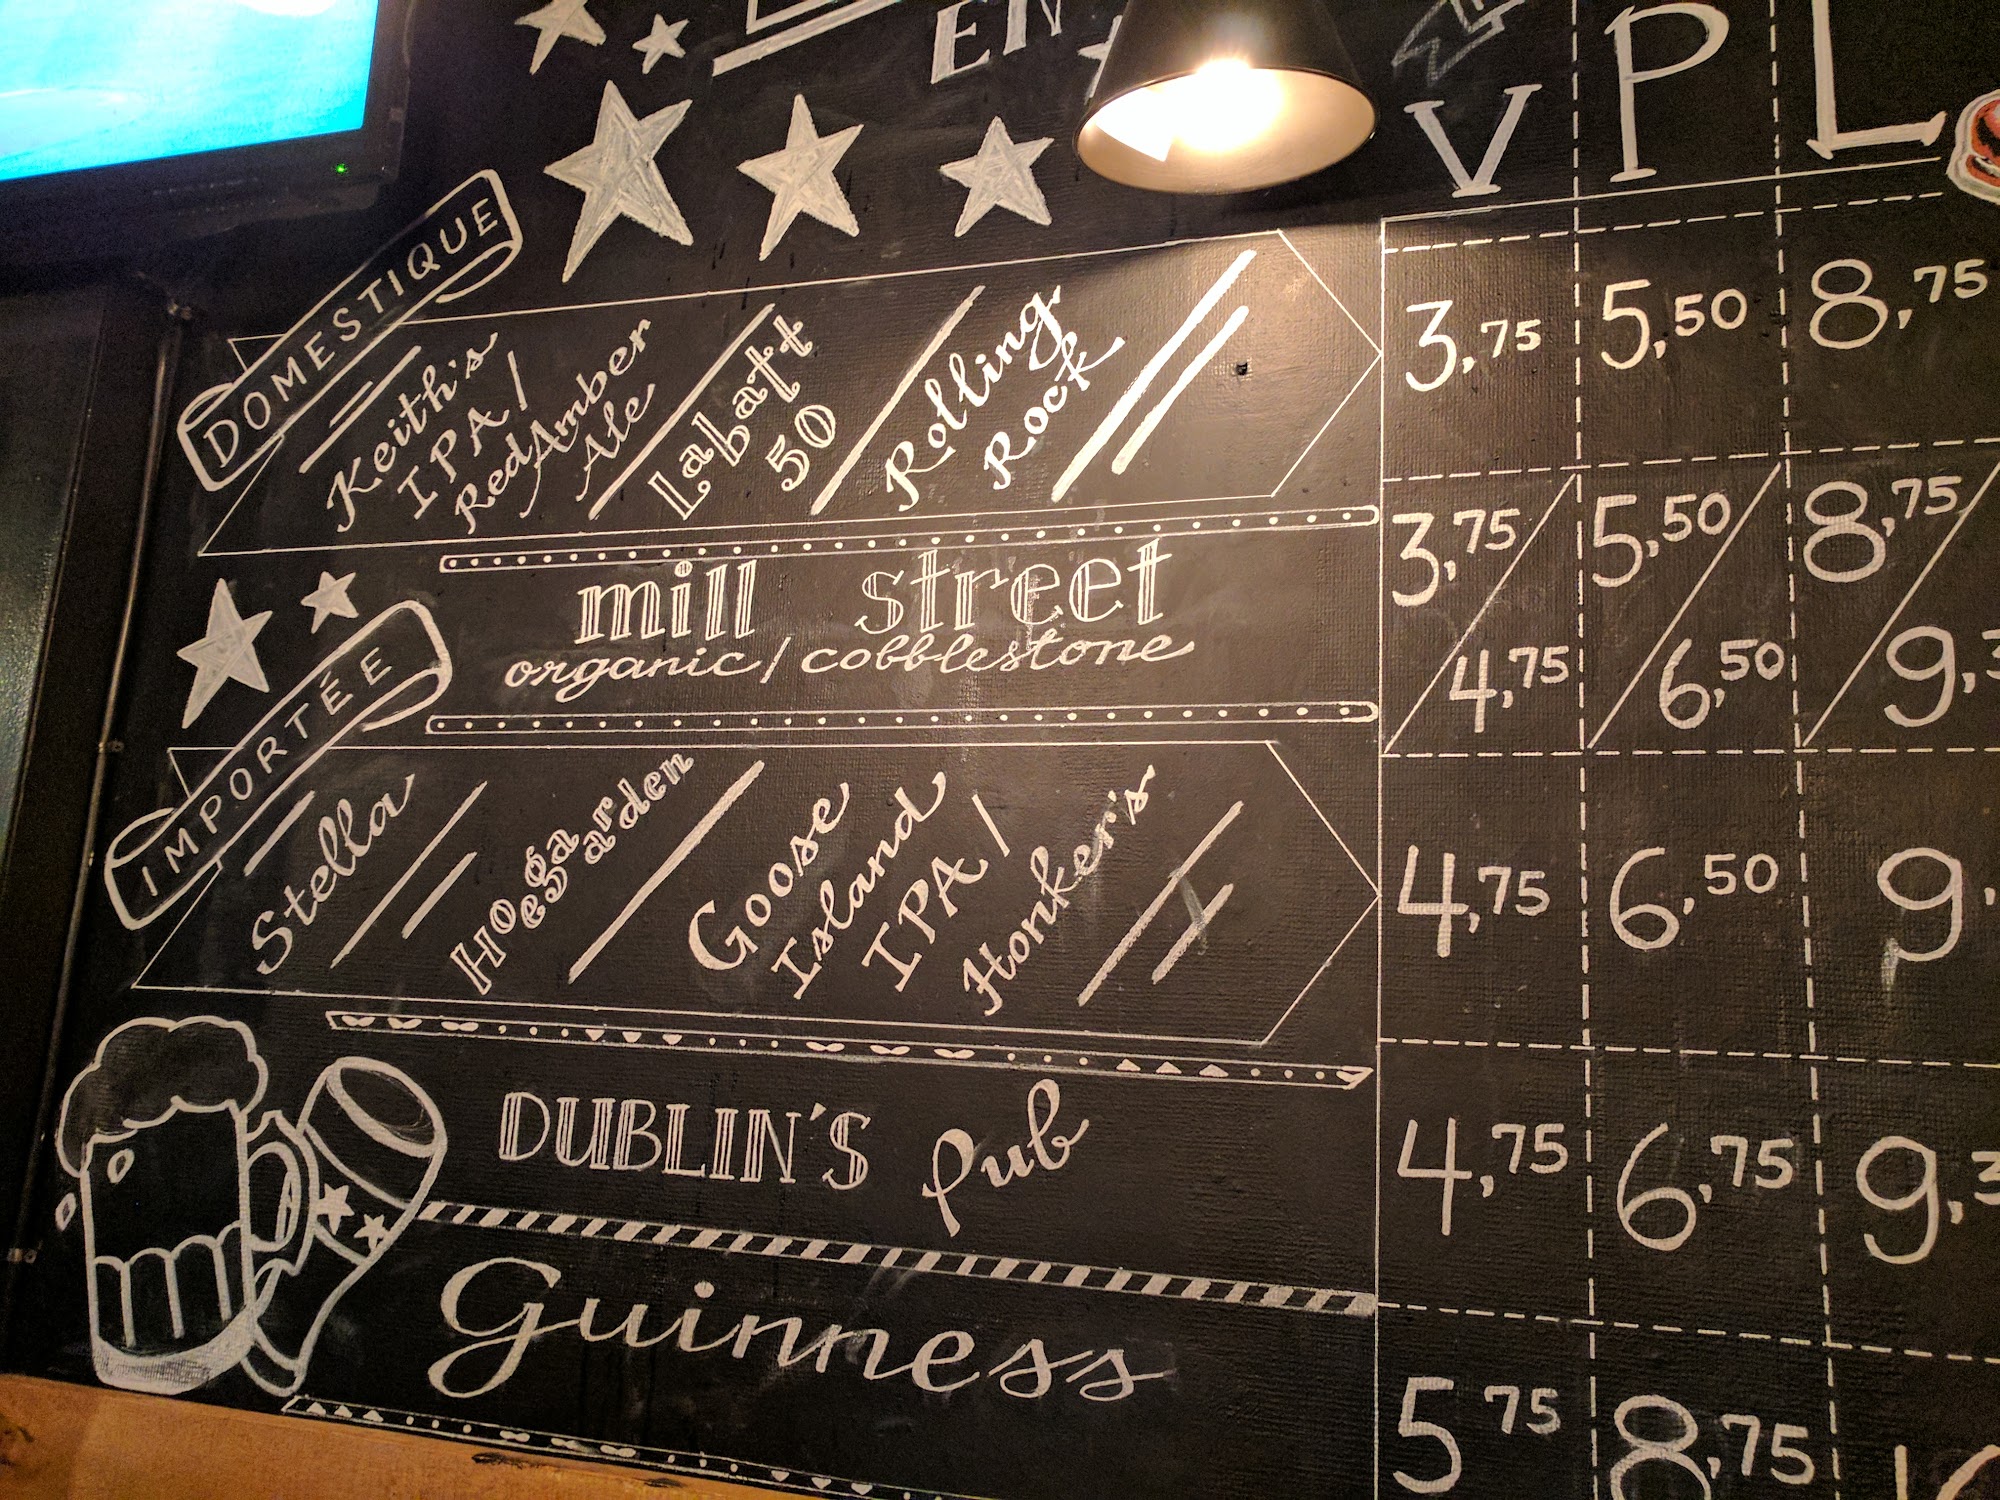 EN
V P L
DOMESTIQUE
Keith's
IPA/
Red Amber
Ale
Labatt
50
Rolling
Rock
3,75 5,50 8,75
mill street
organic/cobblestone
3,75 / 4,75 5,50 / 6,50 8,75 / 9,3
IMPORTÉE
Stella
Hoegaarden
Goose
Island
IPA/
Honker's
4,75 6,50 9,
DUBLIN'S Pub
4,75 6,75 9,3
Guinness
5 75 8,75